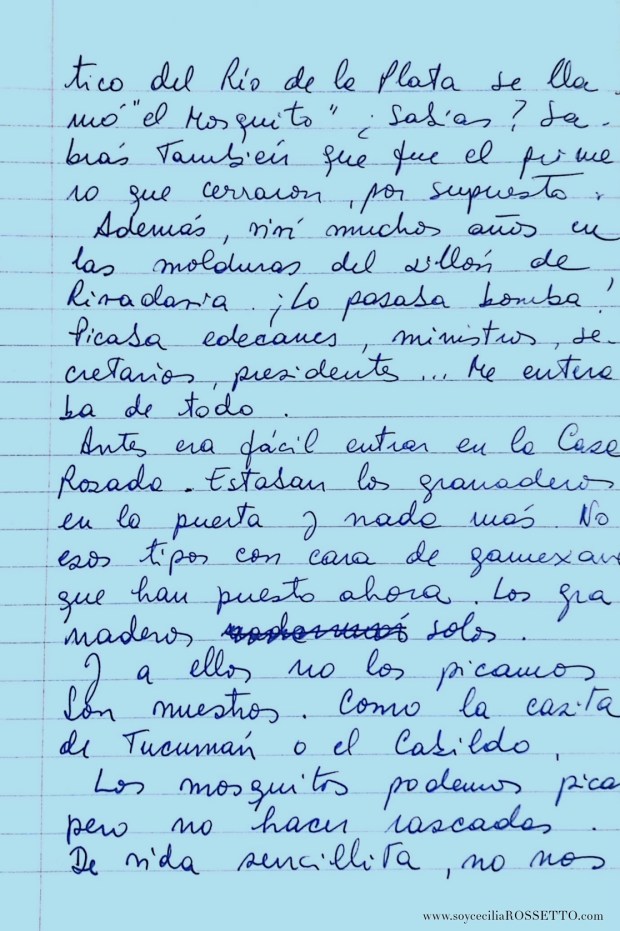 tico del Río de la Plata se lla
mó "el Mosquito" ¿Sabías? Sa-
brás También que fue el prime
ro que cerraron, por supuesto.
Además, viví muchos años en
las molduras del sillón de
Rivadavia. ¡Lo pasaba bomba!
Picaba edecanes, ministros, se-
cretarios, presidentes... Me entera
ba de todo.
Antes era fácil entrar en la Casa
Rosada. Estaban los granaderos
en la puerta y nada más. No
esos tipos con cara de gamexan
que han puesto ahora. Los gra
naderos solos.
Y a ellos no los picamos
Son nuestros. Como la casita
de Tucumán o el Cabildo.
Los mosquitos podemos pica
pero no hacer rascadas.
De vida sencillita, no nos
www.soyceciliaROSSETTO.com